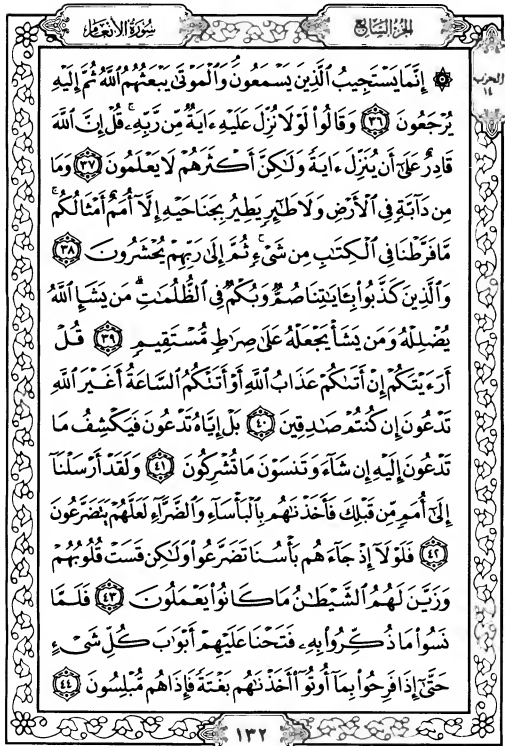 سُورَةُ الأَنْعَامِ
الجُزْءُ السَّابِعُ
الحزب
١٤
۞ إِنَّمَا يَسْتَجِيبُ ٱلَّذِينَ يَسْمَعُونَۘ وَٱلْمَوْتَىٰ يَبْعَثُهُمُ ٱللَّهُ ثُمَّ إِلَيْهِ
يُرْجَعُونَ ٣٦ وَقَالُوا۟ لَوْلَا نُزِّلَ عَلَيْهِ ءَايَةٌ مِّن رَّبِّهِۦۚ قُلْ إِنَّ ٱللَّهَ
قَادِرٌ عَلَىٰٓ أَن يُنَزِّلَ ءَايَةً وَلَٰكِنَّ أَكْثَرَهُمْ لَا يَعْلَمُونَ ٣٧ وَمَا
مِن دَآبَّةٍ فِى ٱلْأَرْضِ وَلَا طَٰٓئِرٍ يَطِيرُ بِجَنَاحَيْهِ إِلَّآ أُمَمٌ أَمْثَالُكُمۚ
مَّا فَرَّطْنَا فِى ٱلْكِتَٰبِ مِن شَىْءٍۚ ثُمَّ إِلَىٰ رَبِّهِمْ يُحْشَرُونَ ٣٨
وَٱلَّذِينَ كَذَّبُوا۟ بِـَٔايَٰتِنَا صُمٌّ وَبُكْمٌ فِى ٱلظُّلُمَٰتِۗ مَن يَشَإِ ٱللَّهُ
يُضْلِلْهُ وَمَن يَشَأْ يَجْعَلْهُ عَلَىٰ صِرَٰطٍ مُّسْتَقِيمٍ ٣٩ قُلْ
أَرَءَيْتَكُمْ إِنْ أَتَىٰكُمْ عَذَابُ ٱللَّهِ أَوْ أَتَتْكُمُ ٱلسَّاعَةُ أَغَيْرَ ٱللَّهِ
تَدْعُونَ إِن كُنتُمْ صَٰدِقِينَ ٤٠ بَلْ إِيَّاهُ تَدْعُونَ فَيَكْشِفُ مَا
تَدْعُونَ إِلَيْهِ إِن شَآءَ وَتَنسَوْنَ مَا تُشْرِكُونَ ٤١ وَلَقَدْ أَرْسَلْنَآ
إِلَىٰٓ أُمَمٍ مِّن قَبْلِكَ فَأَخَذْنَٰهُم بِٱلْبَأْسَآءِ وَٱلضَّرَّآءِ لَعَلَّهُمْ يَتَضَرَّعُونَ
٤٢ فَلَوْلَآ إِذْ جَآءَهُم بَأْسُنَا تَضَرَّعُوا۟ وَلَٰكِن قَسَتْ قُلُوبُهُمْ
وَزَيَّنَ لَهُمُ ٱلشَّيْطَٰنُ مَا كَانُوا۟ يَعْمَلُونَ ٤٣ فَلَمَّا
نَسُوا۟ مَا ذُكِّرُوا۟ بِهِۦ فَتَحْنَا عَلَيْهِمْ أَبْوَٰبَ كُلِّ شَىْءٍ
حَتَّىٰٓ إِذَا فَرِحُوا۟ بِمَآ أُوتُوٓا۟ أَخَذْنَٰهُم بَغْتَةً فَإِذَا هُم مُّبْلِسُونَ ٤٤
١٣٢